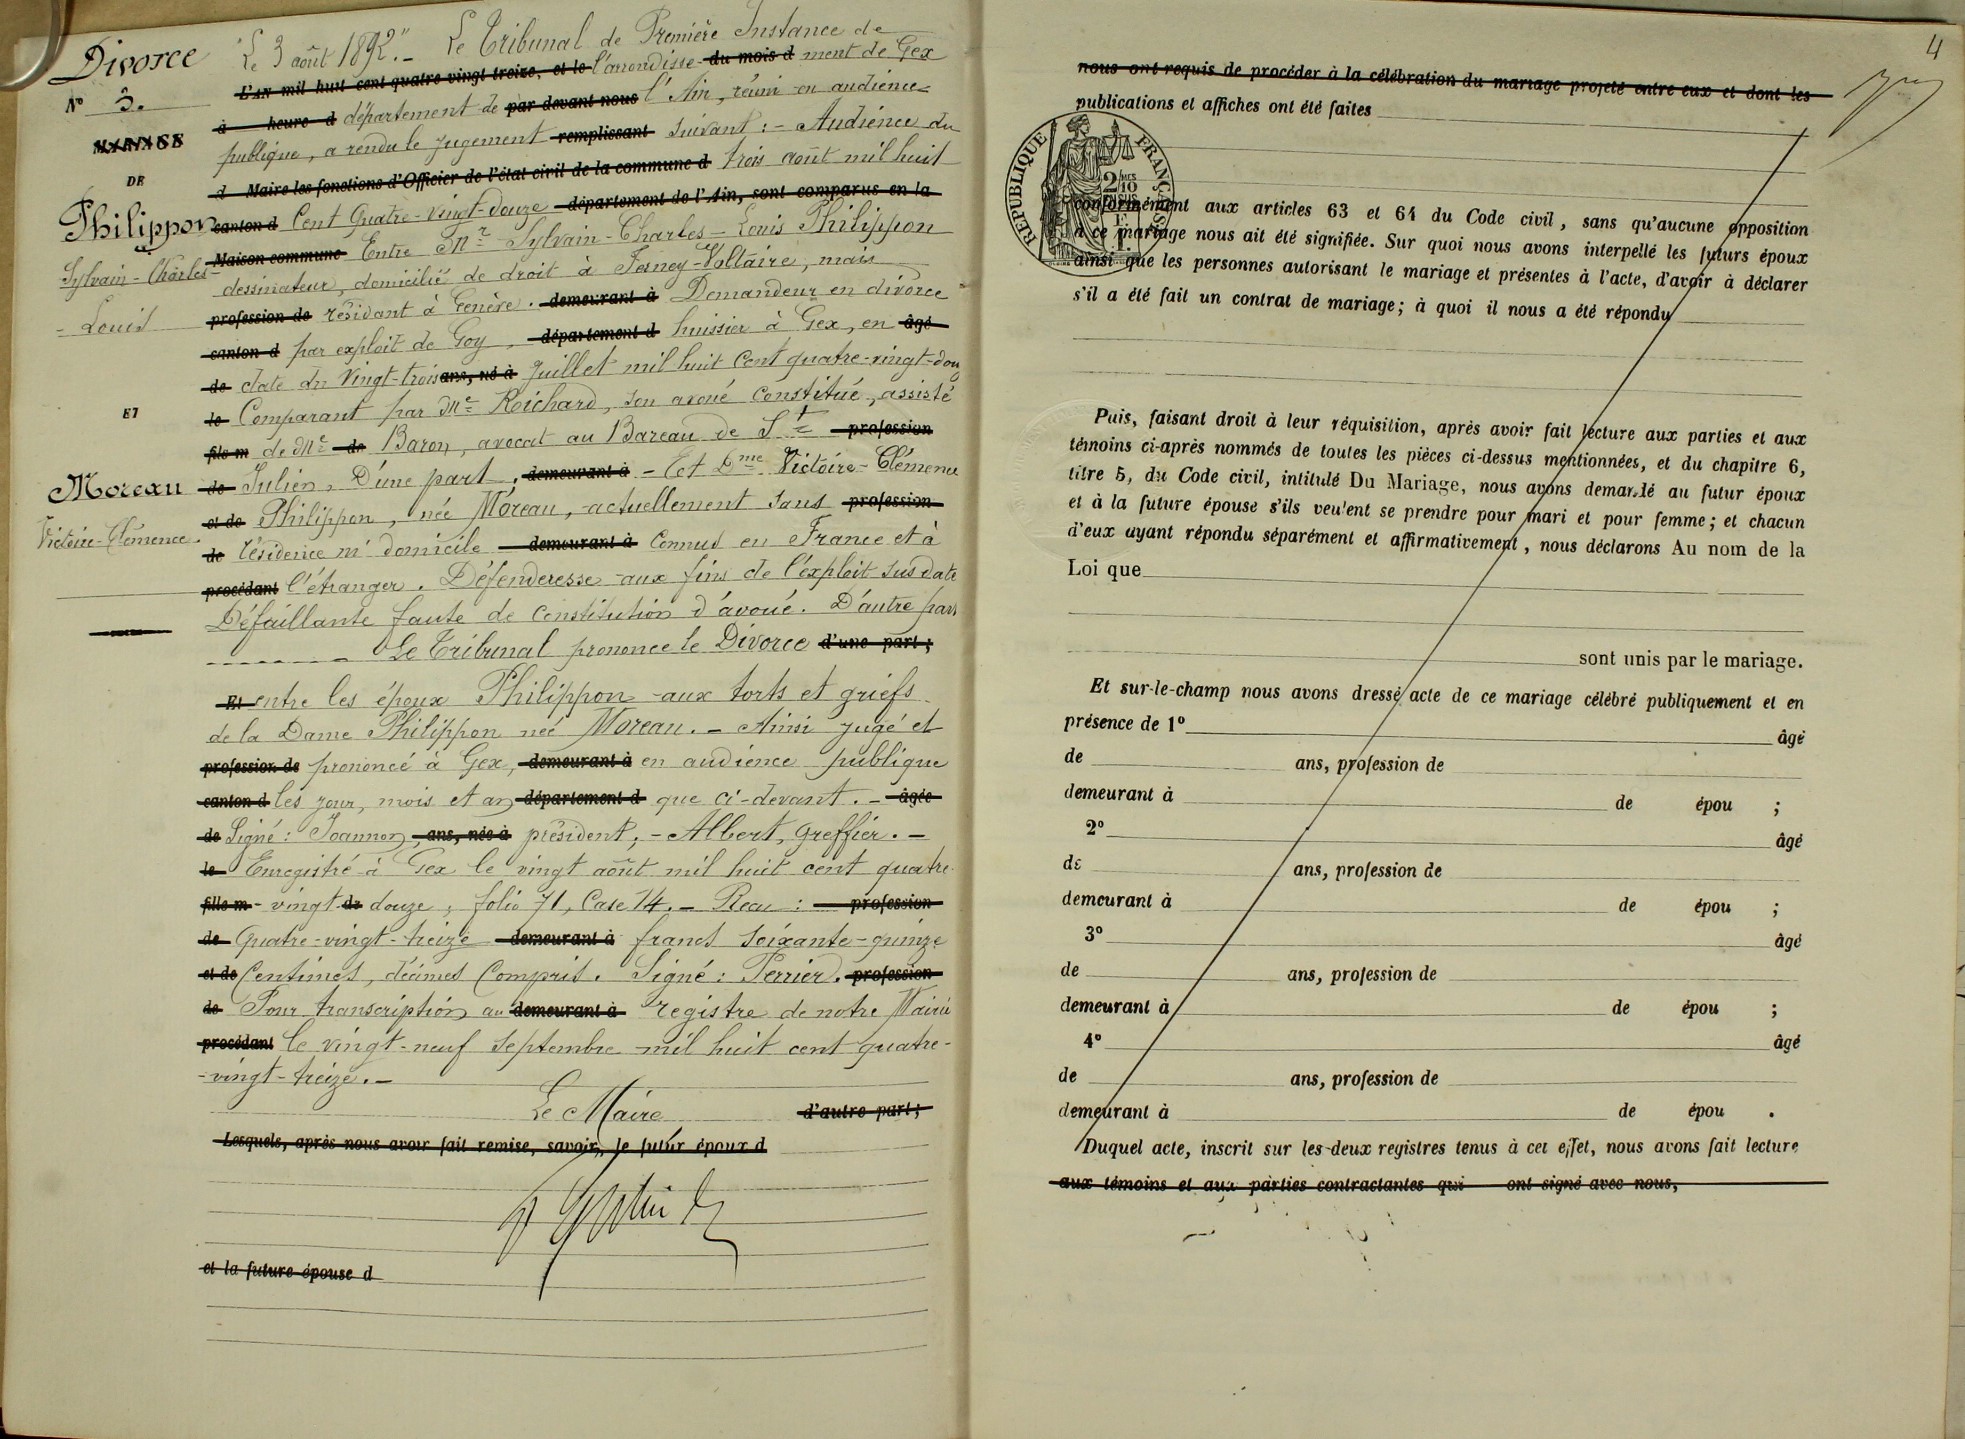 Divorce
N° 3.
MARIAGE
DE
Philippon
Sylvain-Charles-
- Louis
ET
Moreau
Victoire-Clémence.
"Le 3 août 1892".- Le Tribunal de Première Instance de
L'AN mil huit cent quatre vingt treize, et le l'arrondisse- du mois d ment de Gex
à heure d département de par devant nous l'Ain, réuni en audience
publique, a rendu le jugement remplissant suivant :- Audience du
d Maire les fonctions d'Officier de l'état civil de la commune d trois août mil huit
canton d Cent Quatre-vingt-douze département de l'Ain, sont comparus en la
Maison commune Entre Mr Sylvain-Charles-Louis Philippon
dessinateur, domicilié de droit à Ferney-Voltaire, mais
profession de résidant à Genève. demeurant à Demandeur en divorce
canton d par exploit de Goy, département d huissier à Gex, en âgé
de date du Vingt-trois ans, né à Juillet mil huit cent quatre-vingt-douz
le Comparant par Me Roichard, son avoué constitué, assisté
fils m de Me de Baron, avocat au Bareau de St profession
de Julien, D'une part, demeurant à - Et Dme Victoire-Clémence
et de Philippon, née Moreau, actuellement sans profession
de résidence ni domicile demeurant à Connus en France et à
procédant l'étranger. Défenderesse aux fins de l'exploit susdaté
Défaillante faute de constitution d'avoué. D'autre part
Le Tribunal prononce le Divorce d'une part;
Et entre les époux Philippon aux torts et griefs
de la Dame Philippon née Moreau. - Ainsi jugé et
profession de prononcé à Gex, demeurant à en audience publique
canton d les jour, mois et an département d que ci-devant. - âgée
de Signé : Joannon, ans, née à président, - Albert, greffier. -
le Enregistré à Gex le vingt août mil huit cent quatre-
fille m - vingt- de douze, folio 71, Case 14. - Reçu : profession
de Quatre-vingt-treize demeurant à francs soixante-quinze
et de Centimes, décimes Compris. Signé : Perrier. profession
de Pour transcription au demeurant à registre de notre Mairie
procédant le vingt-neuf septembre mil huit cent quatre-
-vingt-treize. -
Le Maire d'autre part;
Lesquels, après nous avoir fait remise, savoir, le futur époux d
et la future épouse d
4
nous ont requis de procéder à la célébration du mariage projeté entre eux et dont les
publications et affiches ont été faites
RÉPUBLIQUE FRANÇAISE
2/10 EN SUS
conformément aux articles 63 et 64 du Code civil, sans qu'aucune opposition
à ce mariage nous ait été signifiée. Sur quoi nous avons interpellé les futurs époux
ainsi que les personnes autorisant le mariage et présentes à l'acte, d'avoir à déclarer
s'il a été fait un contrat de mariage; à quoi il nous a été répondu
Puis, faisant droit à leur réquisition, après avoir fait lecture aux parties et aux
témoins ci-après nommés de toutes les pièces ci-dessus mentionnées, et du chapitre 6,
titre 5, du Code civil, intitulé Du Mariage, nous avons demandé au futur époux
et à la future épouse s'ils veulent se prendre pour mari et pour femme; et chacun
d'eux ayant répondu séparément et affirmativement, nous déclarons Au nom de la
Loi que
sont unis par le mariage.
Et sur-le-champ nous avons dressé acte de ce mariage célébré publiquement et en
présence de 1° âgé
de ans, profession de
demeurant à de épou ;
2° âgé
de ans, profession de
demeurant à de épou ;
3° âgé
de ans, profession de
demeurant à de épou ;
4° âgé
de ans, profession de
demeurant à de épou .
Duquel acte, inscrit sur les deux registres tenus à cet effet, nous avons fait lecture
aux témoins et aux parties contractantes qui ont signé avec nous,